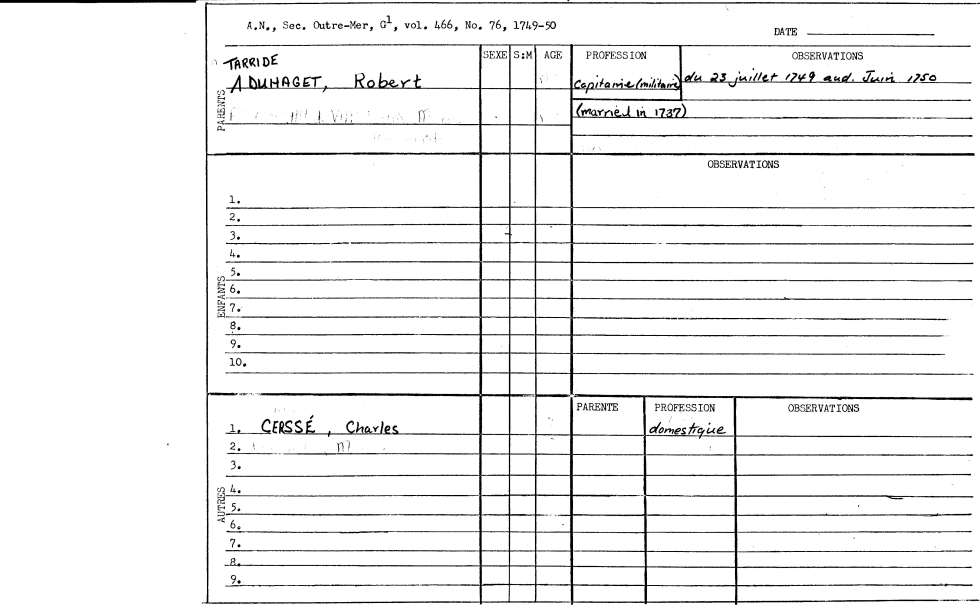 A.N., Sec. Outre-Mer, G1, vol. 466, No. 76, 1749-50
DATE
SEXE S:M AGE PROFESSION OBSERVATIONS
PARENTS
TARRIDE
ADUHAGET, Robert Capitaine (militaire) du 23 juillet 1749 aud. Juin 1750
(married in 1737)
OBSERVATIONS
ENFANTS
1.
2.
3.
4.
5.
6.
7.
8.
9.
10.
PARENTE PROFESSION OBSERVATIONS
AUTRES
1. CERSSÉ, Charles domestique
2.
3.
4.
5.
6.
7.
8.
9.